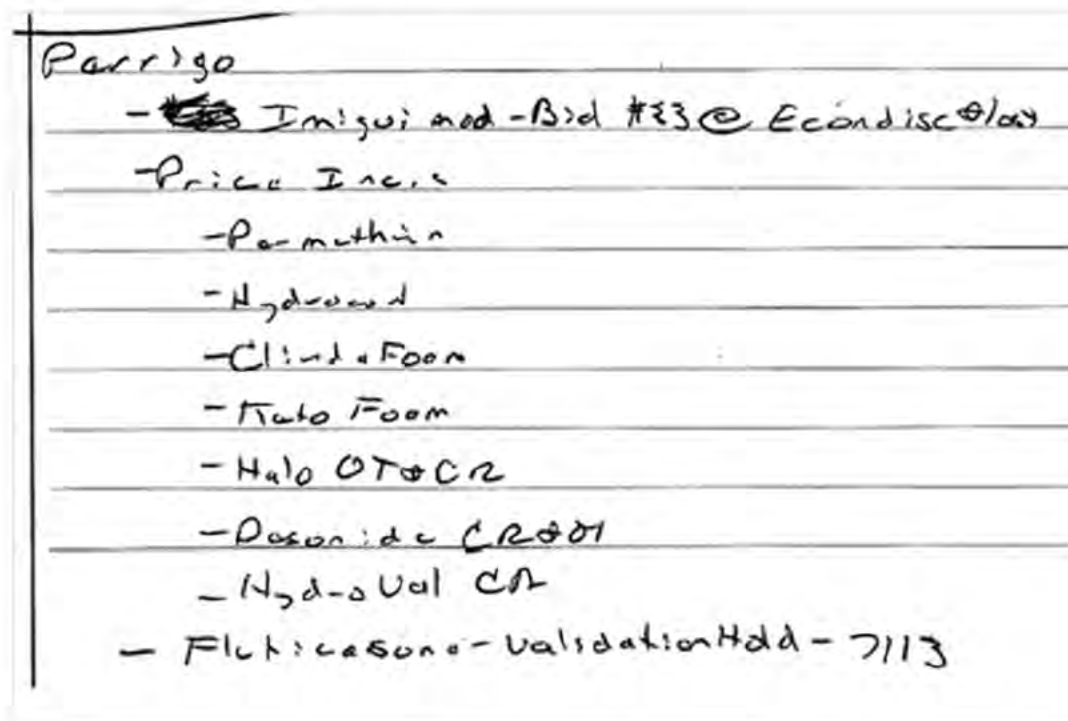 Perrigo
- Imiquimod - Bid #{} @ Econdisc
- Price Incr.
- Permethrin
- Hydrocort
- Clinda Foam
- Keto Foam
- Halo OT & CR
- Desonide CR & OT
- Hydro Val CR
- Fluticasone - Validation Hold - 7/13